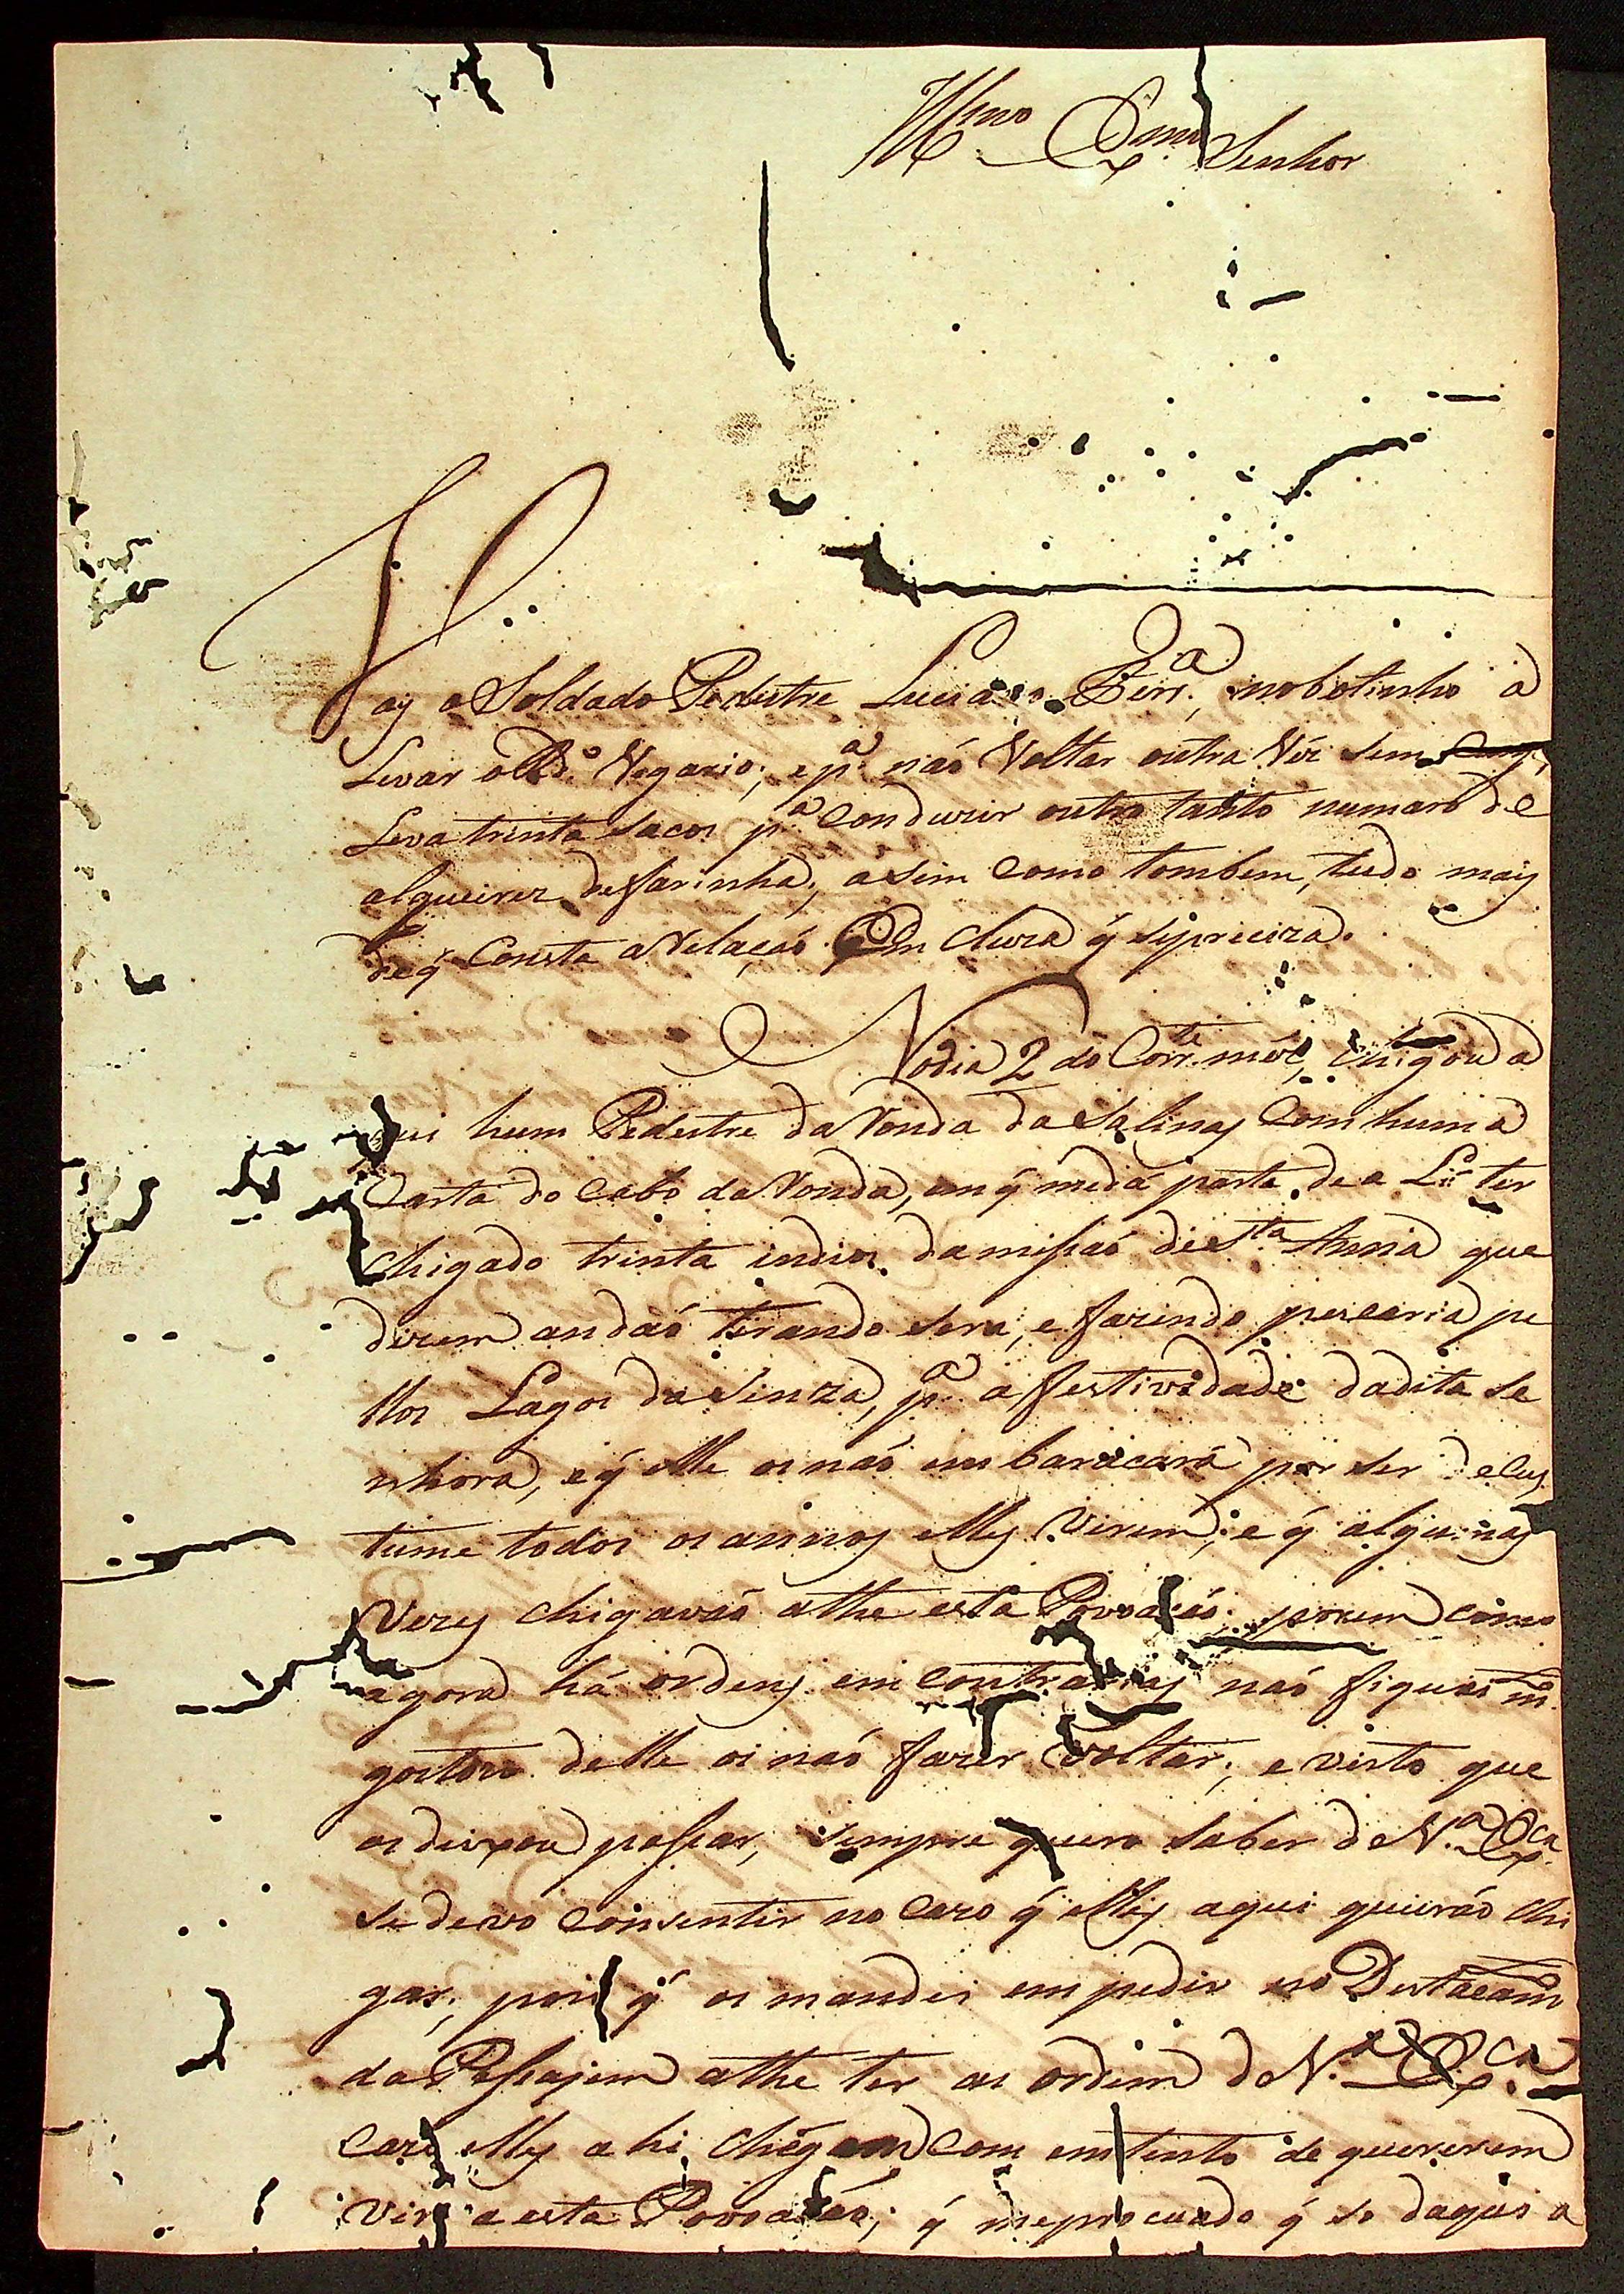 Illmo Exmo Senhor
Vay o Soldado Pedestre Luciano Ferr.a, no botinho a
Levar o Rd.o Vegario; e p.a não Voltar outra Vêz sem Carga,
Leva trinta sacos p.a Conduzir outro tanto numaro de
alqueires de farinha; asim como tombem, tudo mais
de q Consta a Relação Incluza q se preciza.
No dia 2 do Corr.te mês, chigou a
qui hum Pedestre da Ronda da Salinas Com huma
Carta do Cabo da Ronda, em q me dá parte de a Li ter
chigado trinta indios da missaõ de S.ta Anna que
dizem andão tirando sera, e fazendo pescaria pe
llos Lagos da Sinza, p.a a festividade da dita Se
nhora, e q elle os não embaraçará por ser de cus
tume todos os annos elles Virem; e q algumas
Vezes chigavaõ athe esta Povoação; porem como
agora há ordens em contrarias não fiquei m.
gostozo delle os não fazer voltar; e visto que
os deixou passar, sempre quero saber de V.a Ex.ca
se devo consentir no cazo q elles aqui queirão chi
gar, pois q os mandei empedir no Destacam.
da Passajem athe ter as ordim de V.a Ex.ca
cazo elles ahi chégem com entento de quererem
Vir a esta Povoação; q me pro cuado q se daqui a